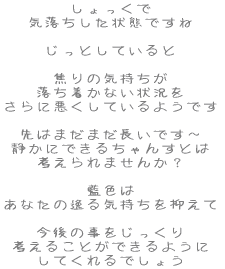 しょっくで
気落ちした状態ですね
じっとしていると
焦りの気持ちが
落ち着かない状況を
さらに悪くしているようです
先はまだまだ長いです～
静かにできるちゃんすとは
考えられませんか？
藍色は
あなたの逸る気持ちを抑えて
今後の事をじっくり
考えることができるように
してくれるでしょう